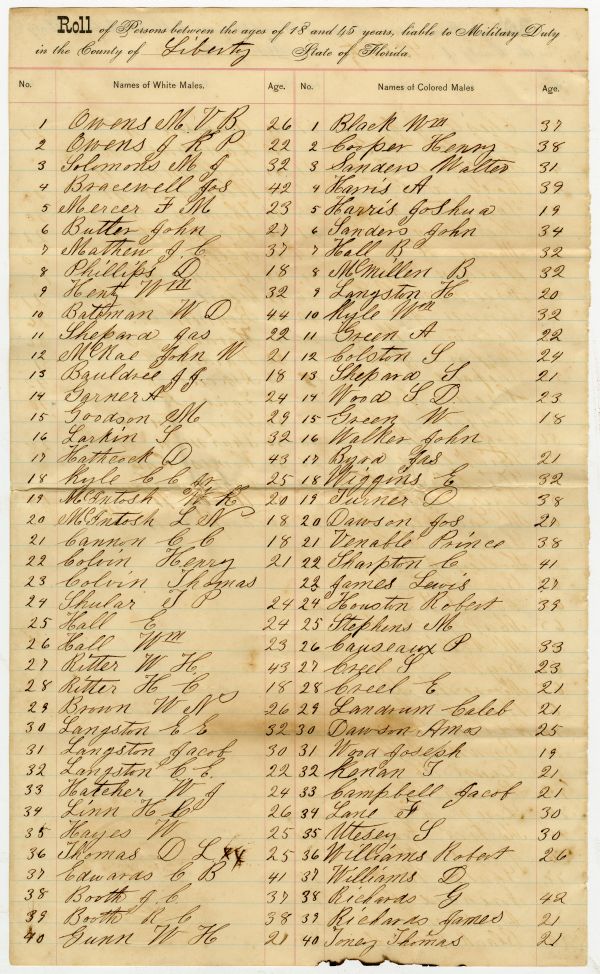 Roll of Persons between the ages of 18 and 45 years, liable to Military Duty
in the County of Liberty State of Florida.
No. Names of White Males. Age. No. Names of Colored Males Age.
1 Owens M. V B 26 1 Black Wm 37
2 Owens J K P 22 2 Cooper Henry 38
3 Solomons M J 32 3 Sanders Walter 31
4 Bracewell Jos 42 4 Harris A 39
5 Mercer F M 23 5 Harris Joshua 19
6 Butler John 27 6 Sanders John 34
7 Mathew J C 37 7 Hall B 32
8 Phillips D 18 8 McMillen B 32
9 Hentz Wm 32 9 Langston H 20
10 Bateman W D 44 10 Kyle Wm 32
11 Shepard Jas 22 11 Green A 22
12 McRae John W 21 12 Colston S 24
13 Bauldree J J. 18 13 Shepard S 21
14 Garner A 24 14 Wood S D. 23
15 Goodson M 29 15 Green W 18
16 Larkin S 32 16 Walker John
17 Hathcock D 43 17 Byrd Jas 21
18 Kyle C C Jr 25 18 Wiggins E 32
19 McIntosh K 20 19 Turner D 38
20 McIntosh L N 18 20 Dawson Jos 27
21 Cannon C C 18 21 Venable Prince 38
22 Colvin Henry 21 22 Sharpton C 41
23 Colvin Thomas 23 James Lewis 27
24 Shular T P 24 24 Houston Robert 39
25 Hall E 24 25 Stephens M
26 Hall Wm 23 26 Causeaux P 33
27 Ritter W H 43 27 Creel S 23
28 Ritter H C 18 28 Creel E 21
29 Brown W N 26 29 Landrum Caleb 21
30 Langston E E 32 30 Dawson Amos 25
31 Langston Jacob 30 31 Wood Joseph 19
32 Langston C E. 22 32 Kenan T 21
33 Hatcher W J 24 33 Campbell Jacob 21
34 Linn H C 26 34 Lane F 30
35 Hayes W 25 35 Utesey S 30
36 Thomas D L 25 36 Williams Robert 26
37 Edwards C B 41 37 Williams D
38 Booth J C 37 38 Richards G 42
39 Booth R C 38 39 Richards James 21
40 Gunn W H 21 40 Toney Thomas 21